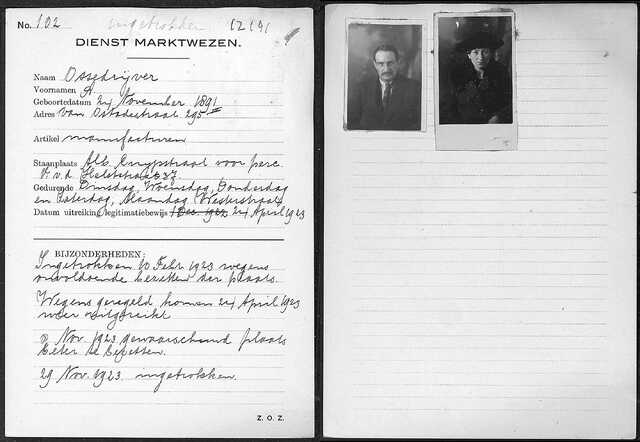 No. 102 ingetrokken 12191
DIENST MARKTWEZEN.
Naam Ossedrijver
Voornamen A.
Geboortedatum 24 November 1891
Adres van Ostadestraat 295 II
Artikel manufacturen
Staanplaats Alb. Cuypstraat voor perc.
V. v.d. Helststraat 37.
Gedurende Dinsdag, Woensdag, Donderdag
en Zaterdag, Maandag (Westerstraat)
Datum uitreiking legitimatiebewijs 1 Dec. 1922 24 April 1923
BIJZONDERHEDEN:
Ingetrokken 10 Febr 1923 wegens
onvoldoende bezetten der plaats.
Wegens geregeld komen 24 April 1923
weer uitgereikt
Nov. 1923 gewaarschuwd plaats
beter te bezetten.
29 Nov. 1923 ingetrokken.
Z. O. Z.